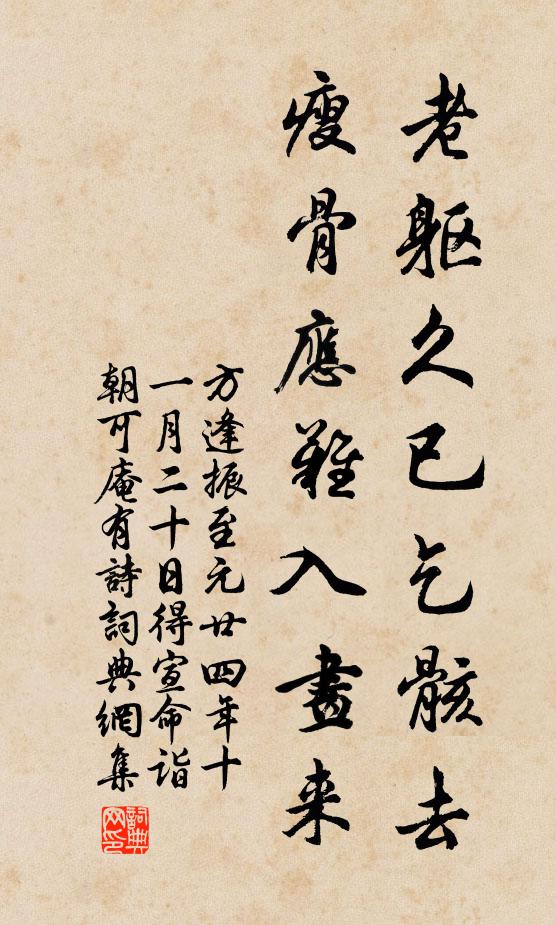 老軀久已乞骸去
瘦骨應難入畫来
方逢振至元廿四年十
一月二十日得宣命詣
朝可庵有詩詞典網集
詞典网印